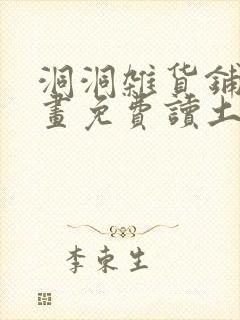 洞洞雜貨鋪
畫免費讀土
李東生